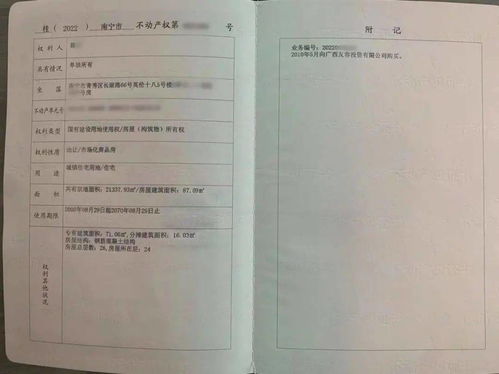 桂（2022）南宁市 不动产权第 号
权利人
共有情况 单独所有
坐落 南宁市青秀区长湖路66号 十八5号楼
号房
不动产单元号
权利类型 国有建设用地使用权/房屋（构筑物）所有权
权利性质 出让/市场化商品房
用途 城镇住宅用地/住宅
面积 共有宗地面积：21337.93㎡/房屋建筑面积：87.09㎡
使用期限 2000年08月29日起2070年08月29日止
权利其他状况
专有建筑面积：71.06㎡，分摊建筑面积：16.03㎡
房屋结构：钢筋混凝土结构
房屋总层数：26，房屋所在层：24
附记
业务编号：20220
2010年5月向广西 投资有限公司购买。